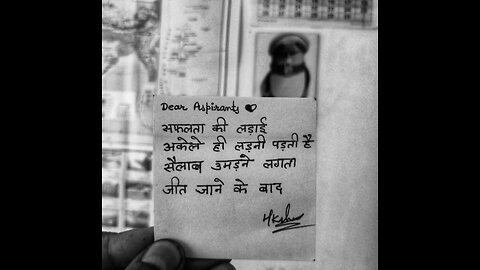 Dear Aspirants
सफलता की लड़ाई
अकेले ही लड़नी पड़ती है
सैलाब उमड़ने लगता
जीत जाने के बाद